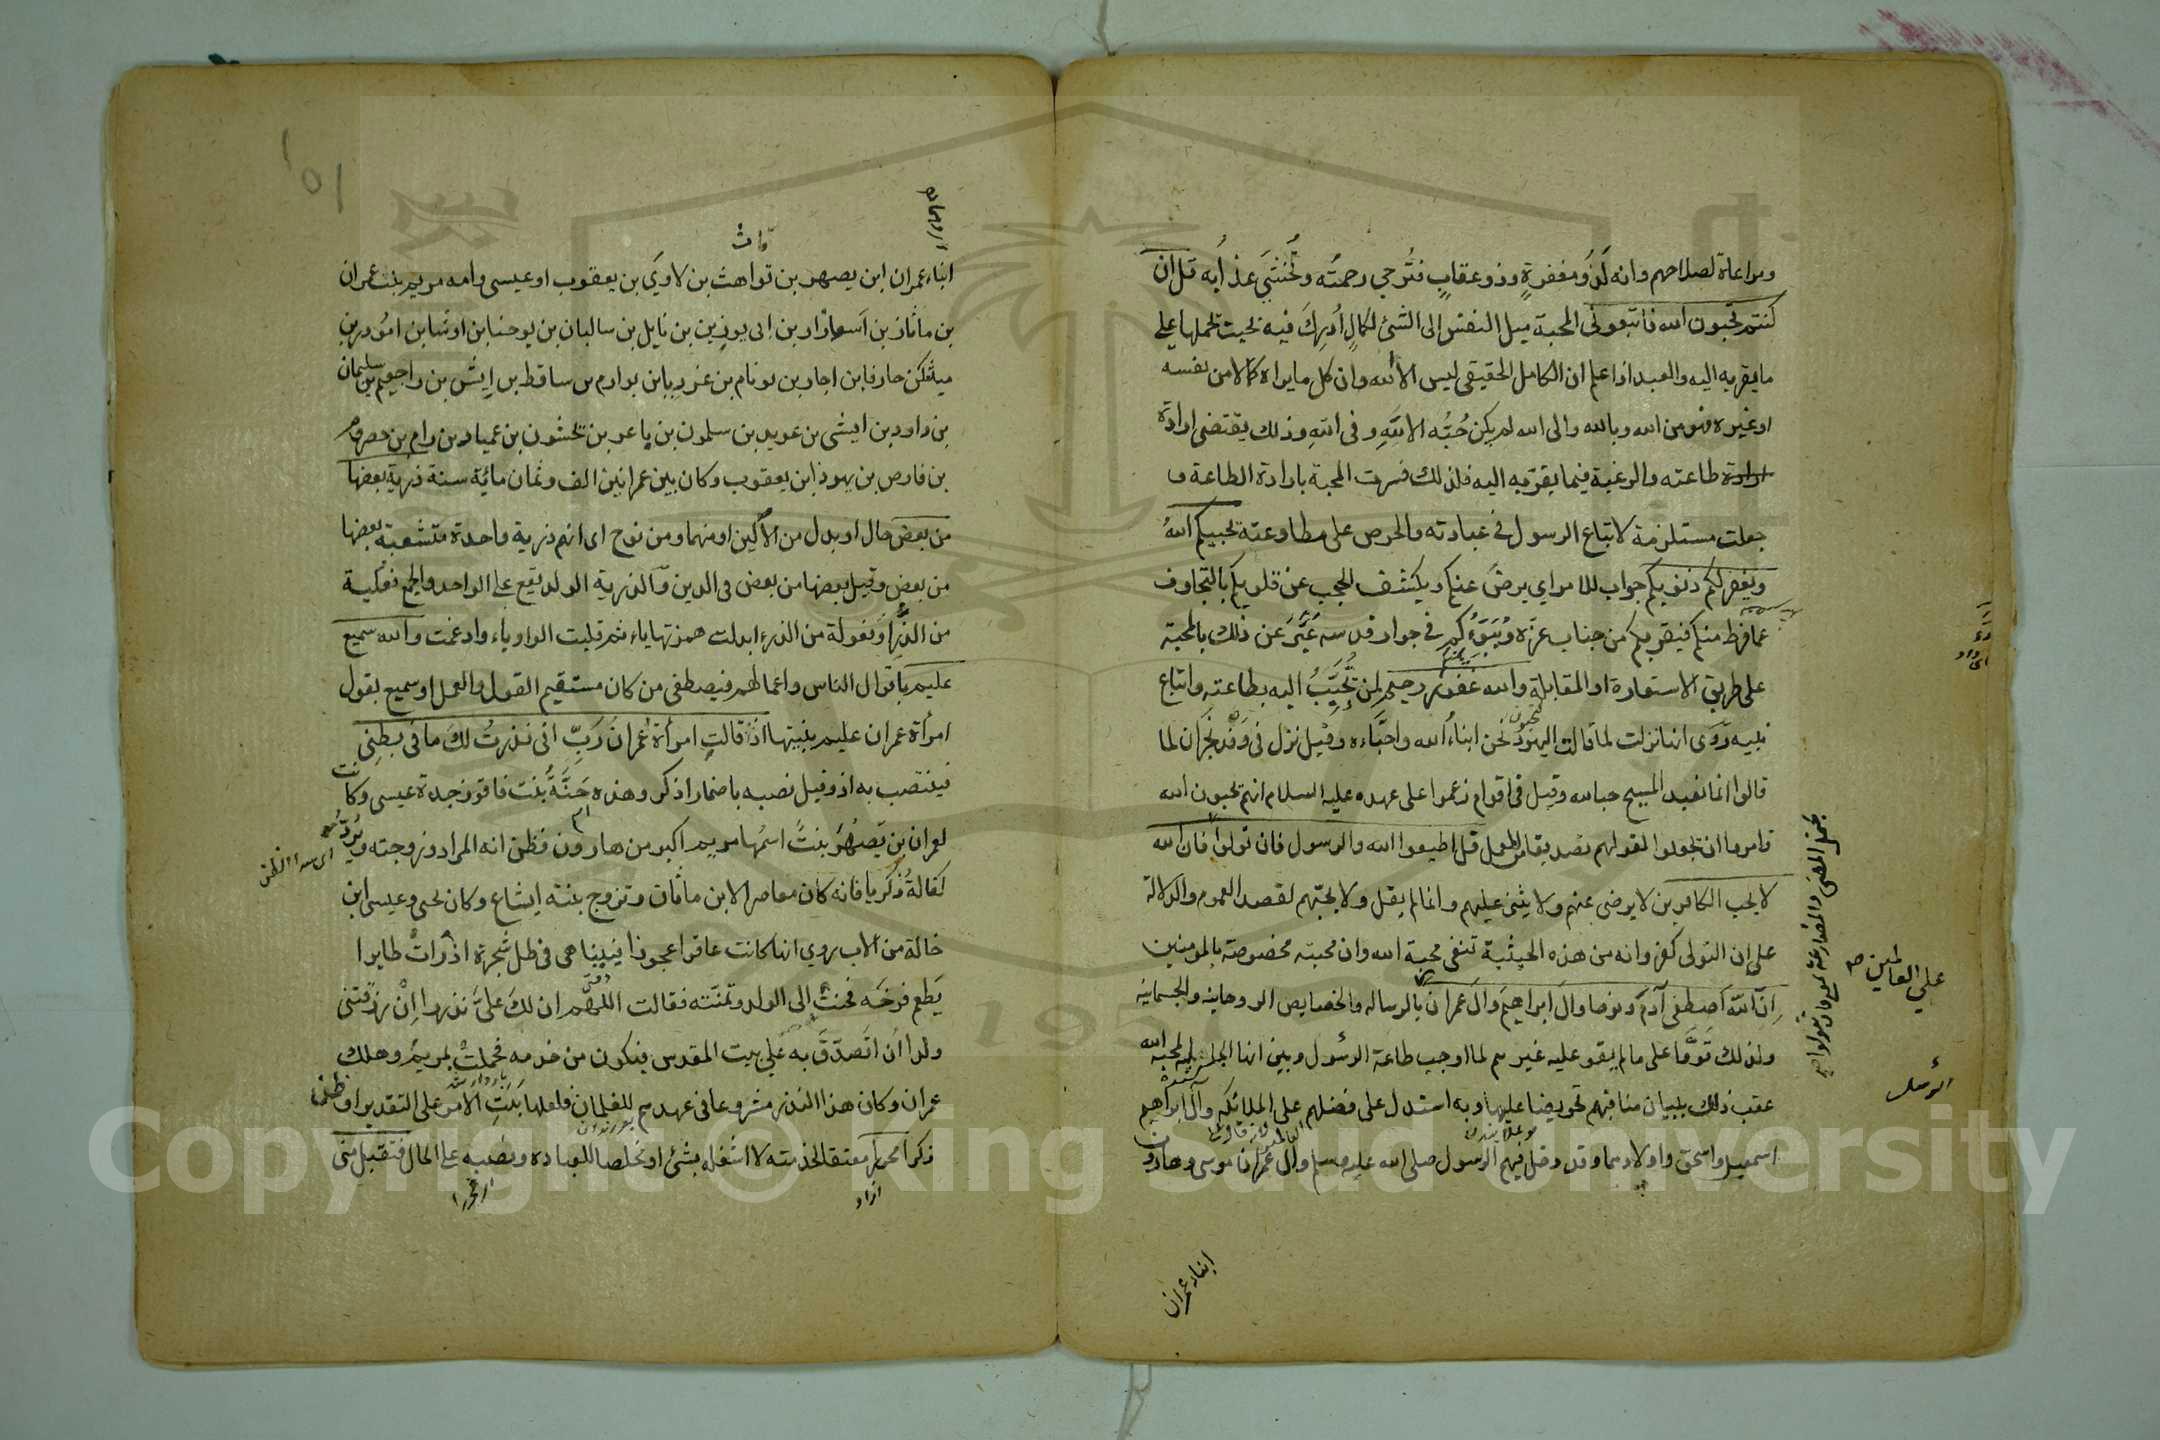 ومراعاة لصلاحهم وانه لَذُو مغفرةٍ وذو عقابٍ فتُرجي رحمتُه وتُخشيَ عذابُه قل ان
كنتم تحبون الله فاتبعوني المحبة ميل النفس الى الشئ لكمالٍ اُدرِكَ فيه بحيث يحملها على
ما يقربه اليه والعبد اذا علم ان الكامل الحقيقي ليس الا لله وان كل ما يراه كمالا من نفسه
او غيره فهو من الله وبالله والى الله لم يكن حُبُّه الا لِلَّهِ وفى اللهِ وذلك يقتضى ارادة
طاعته والرغبة فيما يقربه اليه فلذلك فسرت المحبة بارادة الطاعة و
جعلت مستلزمة لاتباع الرسول في عبادته والحرص على مطاوعته يحببكم اللهُ
ويغفر لكم ذنوبكم جواب للامر اي يرضَ عنكم ويكشف الحجب عن قلوبكم بالتجاوز
عما فرط منكم فيقربكم من جناب عزّه ويُبَوّءُكم في جوار قدسه عَبَّرَ عن ذلك بالمحبة
على طريق الاستعارة او المقابلة والله غفور رحيم لمن تحَبَّبَ اليه بطاعته واتباع
نبيه رُوِىَ انها نزلت لما قالت اليهود نحن ابناءُ الله واحبّاءه وقيل نزل فى وَفْدِ نجران لما
قالوا انما نعبد المسيح حبا لله وقيل فى اقوام زعموا على عهده عليه السلام انهم يحبون الله
فامروا ان يجعلوا لقولهم تصديقا من العمل قل اطيعوا الله والرسول فان تولوا فان الله
لا يحب الكافرين لا يرضى عنهم ولا يثنى عليهم وانما لم يقل ولا يحبّهم لقصد العموم والدلالة
على ان التولى كفر وانه من هذه الحيثية تنفى محبة الله وان محبته مخصوصة بالمومنين
اِنّ الله اصطفى آدمَ ونوحا وآلَ ابراهيمَ وآلَ عمران بالرساله والخصايص الروحانيه والجسمانيه
ولذلك قَوُوا على ما لم يقو عليه غيرهم لما اوجب طاعة الرسول وبين انها الجالبة لمحبة الله
عقب ذلك ببيان مناقبهم تحريضا عليها وبه استدل على فضلهم على الملائكه وآل ابراهيم
اسمعيل واسحق واولادهما وقد دخل فيهم الرسول صلى الله عليه وسلم وآل عمران موسى وهارون
على العالمين صح
الرسل
ابناء عمران
ابناء عمران ابن يصهر بن قواهث بن لاوَي بن يعقوب او عيسى وامه مريم بنت عمران
بن ماثان بن اسعازار بن ابى يوذ بن بن نايل بن ساليان بن يوحنا بن اوشا بن امور بن
بن حازقا بن اجاز بن يوثام بن عزريا بن يورام بن ساقط بن ايش بن راجعيم بن سليمان
بن داود بن ايشى بن عويد بن سلمون بن ياعر بن نخشون بن عمياد بن رام بن حصروم
بن فارص بن يهوذا بن يعقوب وكان بين عمرانين الف وثمان مائة سنة ذرية بعضها
من بعض حال او بدل من الآلَين او منهما ومن نوح اى انهم ذرية واحدة متشعبة بعضها
من بعض وقيل بعضها من بعض فى الدين والذرية الولد يقع على الواحد والجمع فعلية
من الذَّرِّ او فعولة من الذرء ابدلت همزتها ياء ثم قلبت الواو ياء وادغمت والله سميع
عليم باقوال الناس واعمالهم فيصطفى من كان مستقيم القول والعمل او سميع بقول
امرأة عمران عليم بنيتها اذ قالتِ امرأة عمرانَ رَبِّ انى نذرتُ لكَ ما فى بطنِى
فينتصب به اذ وقيل نصبه باضمار اذكر وهذه حَنَّةُ بنت فاقوز جدة عيسى وكانت
لعمران بن يَصْهُرَ بنتٌ اسمُها مريم اكبر من هارون فظن انه المراد وزوجته ويُردّه
كفالةُ زكريا فانه كان معاصرا لابن ماثان وتزوج بنته ايشاع وكان يحيى وعيسى ابن
خالة من الاب روي انها كانت عاقرا عجوزا فبينا هى فى ظل شجرة اذ رأتْ طايرا
يَطعم فرخَه فحنت الى الولد وتمنّته فقالت اللهم ان لكَ علىَّ نذرا اِنْ رزقتنى
ولدا ان اتَصدّقَ به على بيت المقدس فيكون من خدمه فحملتْ بمريم وهلك
عمران وكان هذا النذر مشروعا فى عهدهم للغلمان فلعلها بَنَتِ الامرَ على التقدير او طلبت
ذكرا محررا معتقا لخدمته لا اشغله بشئ او مخلصا للعباده ونصبه على الحال فتقبل منى